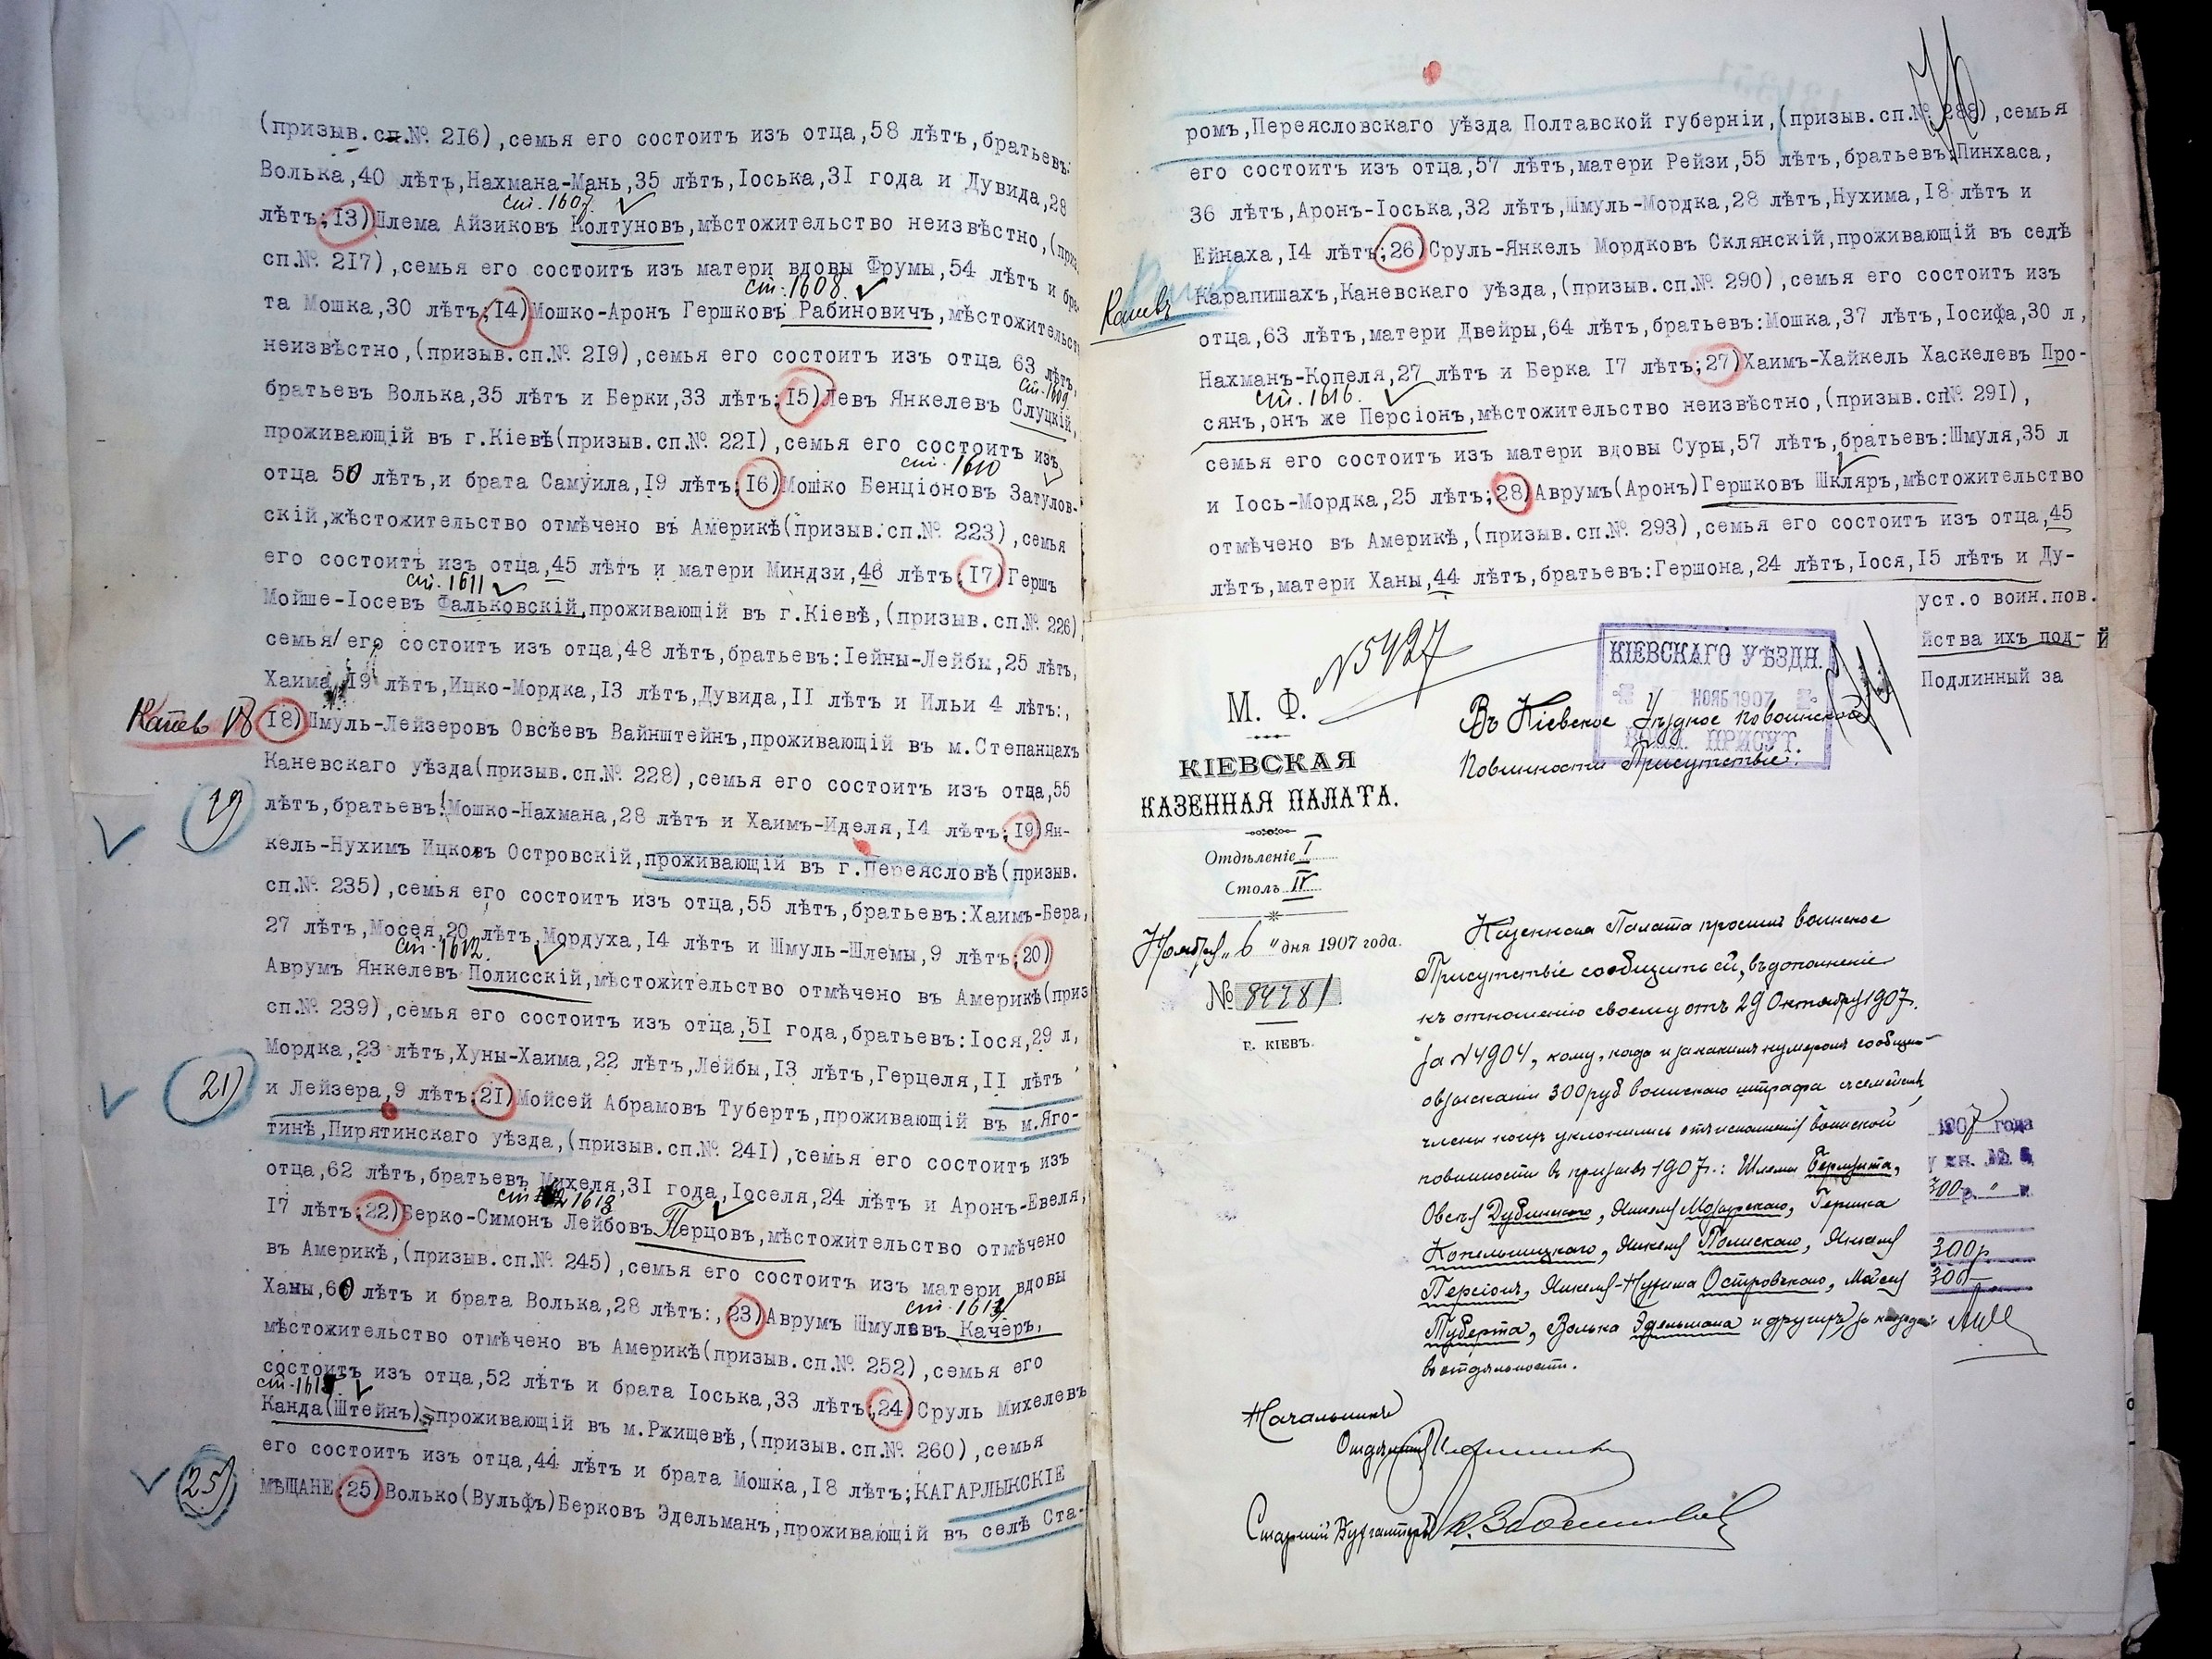 (призыв.сп.№ 216),семья его состоитъ изъ отца,58 лѣтъ,братьевъ:
Волька,40 лѣтъ,Нахмана-Мань,35 лѣтъ,Іоська,31 года и Дувида,28
ст.1607
лѣтъ;13)Шлема Айзиковъ Колтуновъ,мѣстожительство неизвѣстно,(приз
сп.№ 217),семья его состоитъ изъ матери вдовы Фрумы,54 лѣтъ и бра-
ст.1608
та Мошка,30 лѣтъ;14)Мошко-Аронъ Гершковъ Рабиновичъ,мѣстожительств
неизвѣстно,(призыв.сп.№ 219),семья его состоитъ изъ отца 63 лѣтъ,
ст.1609
братьевъ Волька,35 лѣтъ и Берки,33 лѣтъ;15)Левъ Янкелевъ Слуцкій,
проживающій въ г.Кіевѣ(призыв.сп.№ 221),семья его состоитъ изъ
ст.1610
отца 50 лѣтъ,и брата Самуила,19 лѣтъ;16)Мошко Бенціоновъ Затулов-
скій,жѣстожительство отмѣчено въ Америкѣ(призыв.сп.№ 223),семья
его состоитъ изъ отца,45 лѣтъ и матери Миндзи,46 лѣтъ;17)Гершъ
ст.1611
Мойше-Іосевъ Фальковскій,проживающій въ г.Кіевѣ,(призыв.сп.№ 226)
семья его состоитъ изъ отца,48 лѣтъ,братьевъ:Іейны-Лейбы,25 лѣтъ,
Хаима,19 лѣтъ,Ицко-Мордка,13 лѣтъ,Дувида,11 лѣтъ и Ильи 4 лѣтъ:,
Каневъ 18
18)Шмуль-Лейзеровъ Овсѣевъ Вайнштейнъ,проживающій въ м.Степанцахъ
Каневскаго уѣзда(призыв.сп.№ 228),семья его состоитъ изъ отца,55
19)
лѣтъ,братьевъ:Мошко-Нахмана,28 лѣтъ и Хаимъ-Иделя,14 лѣтъ;19)Ян-
кель-Нухимъ Ицковъ Островскій,проживающій въ г.Переясловѣ(призыв.
сп.№ 235),семья его состоитъ изъ отца,55 лѣтъ,братьевъ:Хаимъ-Бера,
27 лѣтъ,Мосея,20 лѣтъ,Мордуха,14 лѣтъ и Шмуль-Шлемы,9 лѣтъ;20)
ст.1612.
Аврумъ Янкелевъ Полисскій,мѣстожительство отмѣчено въ Америкѣ(приз
сп.№ 239),семья его состоитъ изъ отца,51 года,братьевъ:Іося,29 л,
Мордка,23 лѣтъ,Хуны-Хаима,22 лѣтъ,Лейбы,13 лѣтъ,Герцеля,11 лѣтъ
21)
и Лейзера,9 лѣтъ;21)Мойсей Абрамовъ Тубертъ,проживающій въ м.Яго-
тинѣ,Пирятинскаго уѣзда,(призыв.сп.№ 241),семья его состоитъ изъ
отца,62 лѣтъ,братьевъ Михеля,31 года,Іоселя,24 лѣтъ и Аронъ-Евеля,
ст. 1613
17 лѣтъ;22)Берко-Симонъ Лейбовъ Перцовъ,мѣстожительство отмѣчено
въ Америкѣ,(призыв.сп.№ 245),семья его состоитъ изъ матери вдовы
Ханы,60 лѣтъ и брата Волька,28 лѣтъ:,23)Аврумъ Шмулевъ Качеръ,
ст.1614
мѣстожительство отмѣчено въ Америкѣ(призыв.сп.№ 252),семья его
состоитъ изъ отца,52 лѣтъ и брата Іоська,33 лѣтъ;24)Сруль Михелевъ
ст.1615
Канда(Штейнъ),проживающій въ м.Ржищевѣ,(призыв.сп.№ 260),семья
его состоитъ изъ отца,44 лѣтъ и брата Мошка,18 лѣтъ;КАГАРЛЫКСКІЕ
25)
МѢЩАНЕ:25)Волько(Вульфъ)Берковъ Эдельманъ,проживающій въ селѣ Ста-
ромъ,Переясловскаго уѣзда Полтавской губерніи,(призыв.сп.№ 288),семья
его состоитъ изъ отца,57 лѣтъ,матери Рейзи,55 лѣтъ,братьевъ:Пинхаса,
36 лѣтъ,Аронъ-Іоська,32 лѣтъ,Шмуль-Мордка,28 лѣтъ,Нухима,18 лѣтъ и
Ейнаха,14 лѣтъ;26)Сруль-Янкель Мордковъ Склянскій,проживающій въ селѣ
Каневъ
Карапишахъ,Каневскаго уѣзда,(призыв.сп.№ 290),семья его состоитъ изъ
отца,63 лѣтъ,матери Двейры,64 лѣтъ,братьевъ:Мошка,37 лѣтъ,Іосифа,30 л,
Нахманъ-Копеля,27 лѣтъ и Берка 17 лѣтъ;27)Хаимъ-Хайкель Хаскелевъ Про-
ст.1616.
сянъ,онъ же Персіонъ,мѣстожительство неизвѣстно,(призыв.сп№ 291),
семья его состоитъ изъ матери вдовы Суры,57 лѣтъ,братьевъ:Шмуля,35 л
и Іось-Мордка,25 лѣтъ;28)Аврумъ(Аронъ)Гершковъ Шкляръ,мѣстожительство
отмѣчено въ Америкѣ,(призыв.сп.№ 293),семья его состоитъ изъ отца,45
лѣтъ,матери Ханы,44 лѣтъ,братьевъ:Гершона,24 лѣтъ,Іося,15 лѣтъ и Ду-
уст.о воин.пов.
йства ихъ под- й
Подлинный за
№5427
КІЕВСКАГО УѢЗДН.
7 НОЯБ 1907
ВОИН. ПРИСУТ.
М. Ф.
КІЕВСКАЯ
КАЗЕННАЯ ПАЛАТА.
Отдѣленіе I
Столъ IV
Ноября „6" дня 1907 года.
№ 84281
Г. КІЕВЪ.
Въ Кіевское Уѣздное по воинской
Повинности Присутствіе.
Казенная Палата проситъ воинское
Присутствіе сообщить ей, въ дополненіе
къ отношенію своему отъ 29 Октября 1907г.
за №4904, кому, когда и за какимъ нумеромъ сообщено
о взысканіи 300 руб воинскаго штрафа съ семействъ,
члены коихъ уклонились отъ исполненія воинской
повинности въ призывъ 1907г.: Шлемы
Овсѣя Дубинскаго, Янкеля Гершка
Янкеля Полискаго,
Персіонъ, Янкеля-Нухима Островскаго, Мойсея
Туберта, Волька Эдельмана и другихъ за каждого
въ отдѣльности.
1907 года
300 р. „ к.
300р
300
Начальникъ
Отдѣленія
Старшій Бухгалтеръ